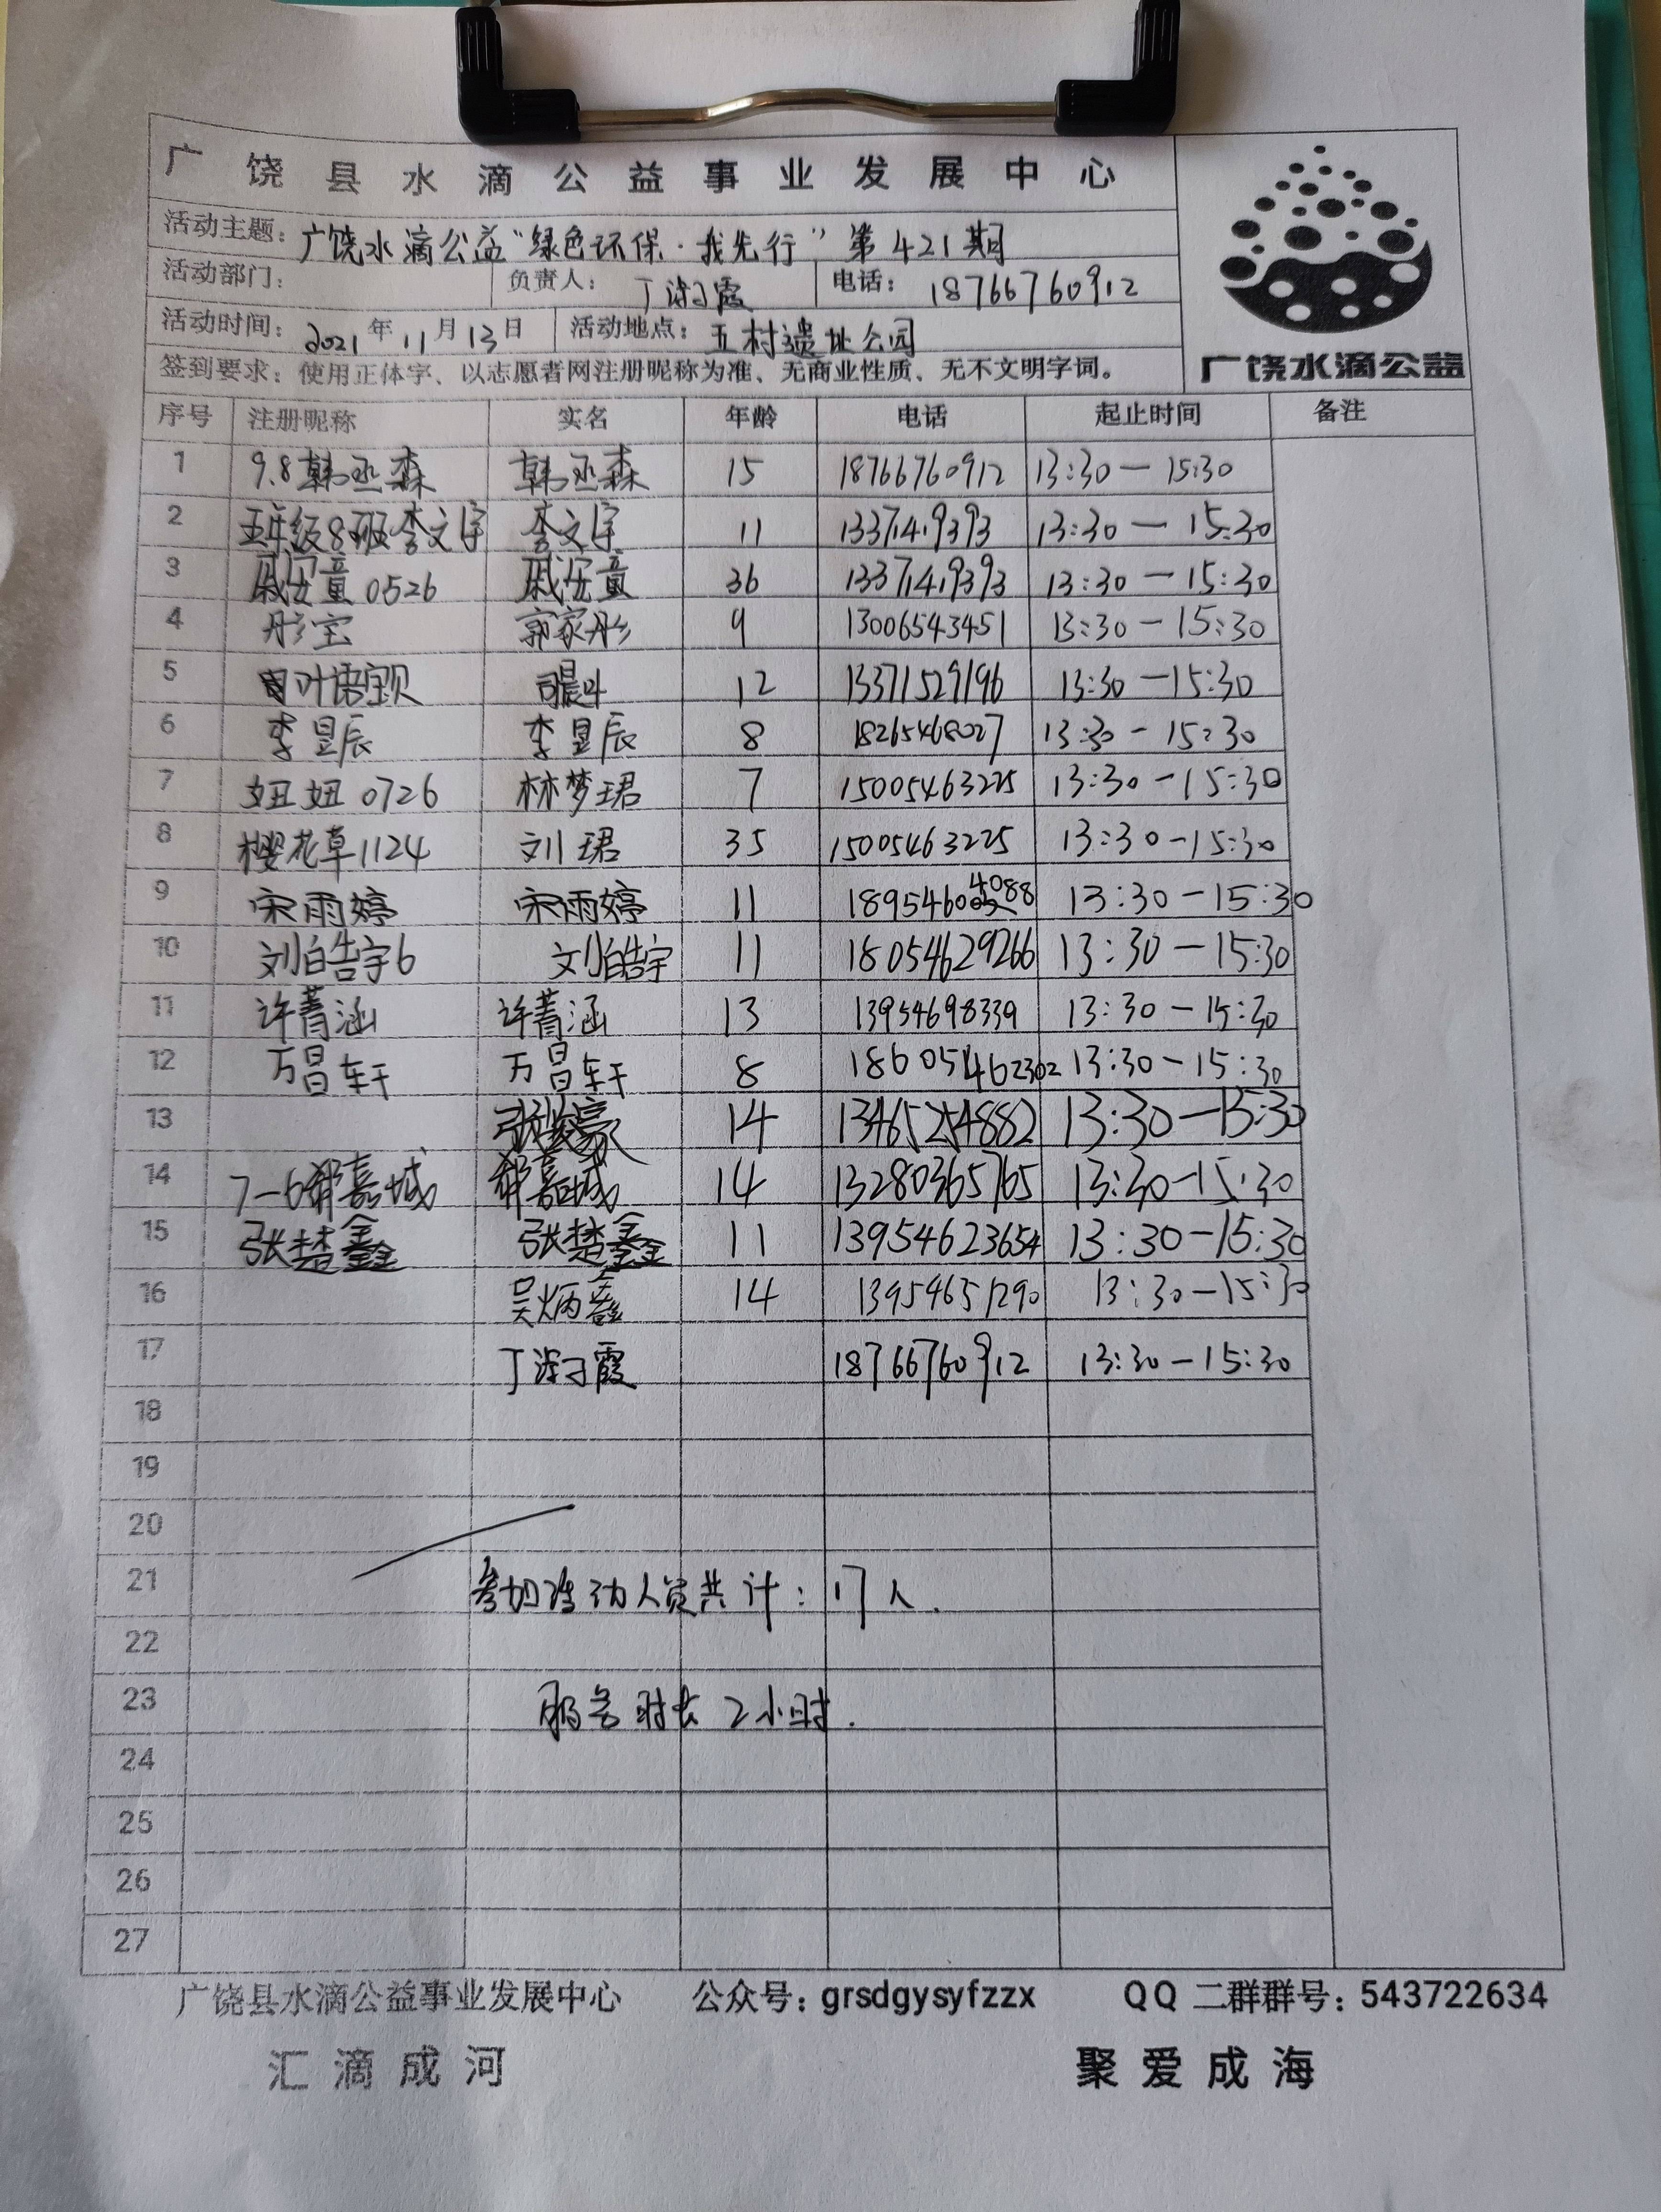 广饶县水滴公益事业发展中心
活动主题：广饶水滴公益“绿色环保·我先行”第421期
活动部门： 负责人：丁淑霞 电话：18766760912
活动时间：2021年11月13日 活动地点：五村遗址公园
广饶水滴公益
签到要求：使用正体字、以志愿者网注册昵称为准、无商业性质、无不文明字词。
序号 注册昵称 实名 年龄 电话 起止时间 备注
1 9.8韩丞森 韩丞森 15 18766760912 13:30—15:30
2 五年级8班李文宇 李文宇 11 13371419393 13:30—15:30
3 0526 36 13371419393 13:30—15:30
4 彤宝 郭家彤 9 13006543451 13:30—15:30
5 叶语宝贝 12 13371529196 13:30—15:30
6 李昱辰 李昱辰 8 18265468027 13:30-15:30
7 妞妞0726 林梦珺 7 15005463225 13:30-15:30
8 樱花草1124 刘珺 35 15005463225 13:30-15:30
9 宋雨婷 宋雨婷 11 13:30-15:30
10 刘皓宇6 刘皓宇 11 18054629266 13:30—15:30
11 许菁涵 许菁涵 13 13954698339 13:30-15:30
12 万昌轩 万昌轩 8 18605462302 13:30-15:30
13 14 13465254882 13:30-15:30
14 嘉城 嘉城 14 13280365765 13:30-15:30
15 张楚鑫 张楚鑫 11 13954623654 13:30-15:30
16 吴炳鑫 14 13954651290 13:30-15:30
17 丁淑霞 18766760912 13:30-15:30
18
19
20
21 参加活动人员共计：17人.
22
23 服务时长2小时.
24
25
26
27
广饶县水滴公益事业发展中心 公众号：grsdgysyfzzx QQ二群群号：543722634
汇滴成河 聚爱成海